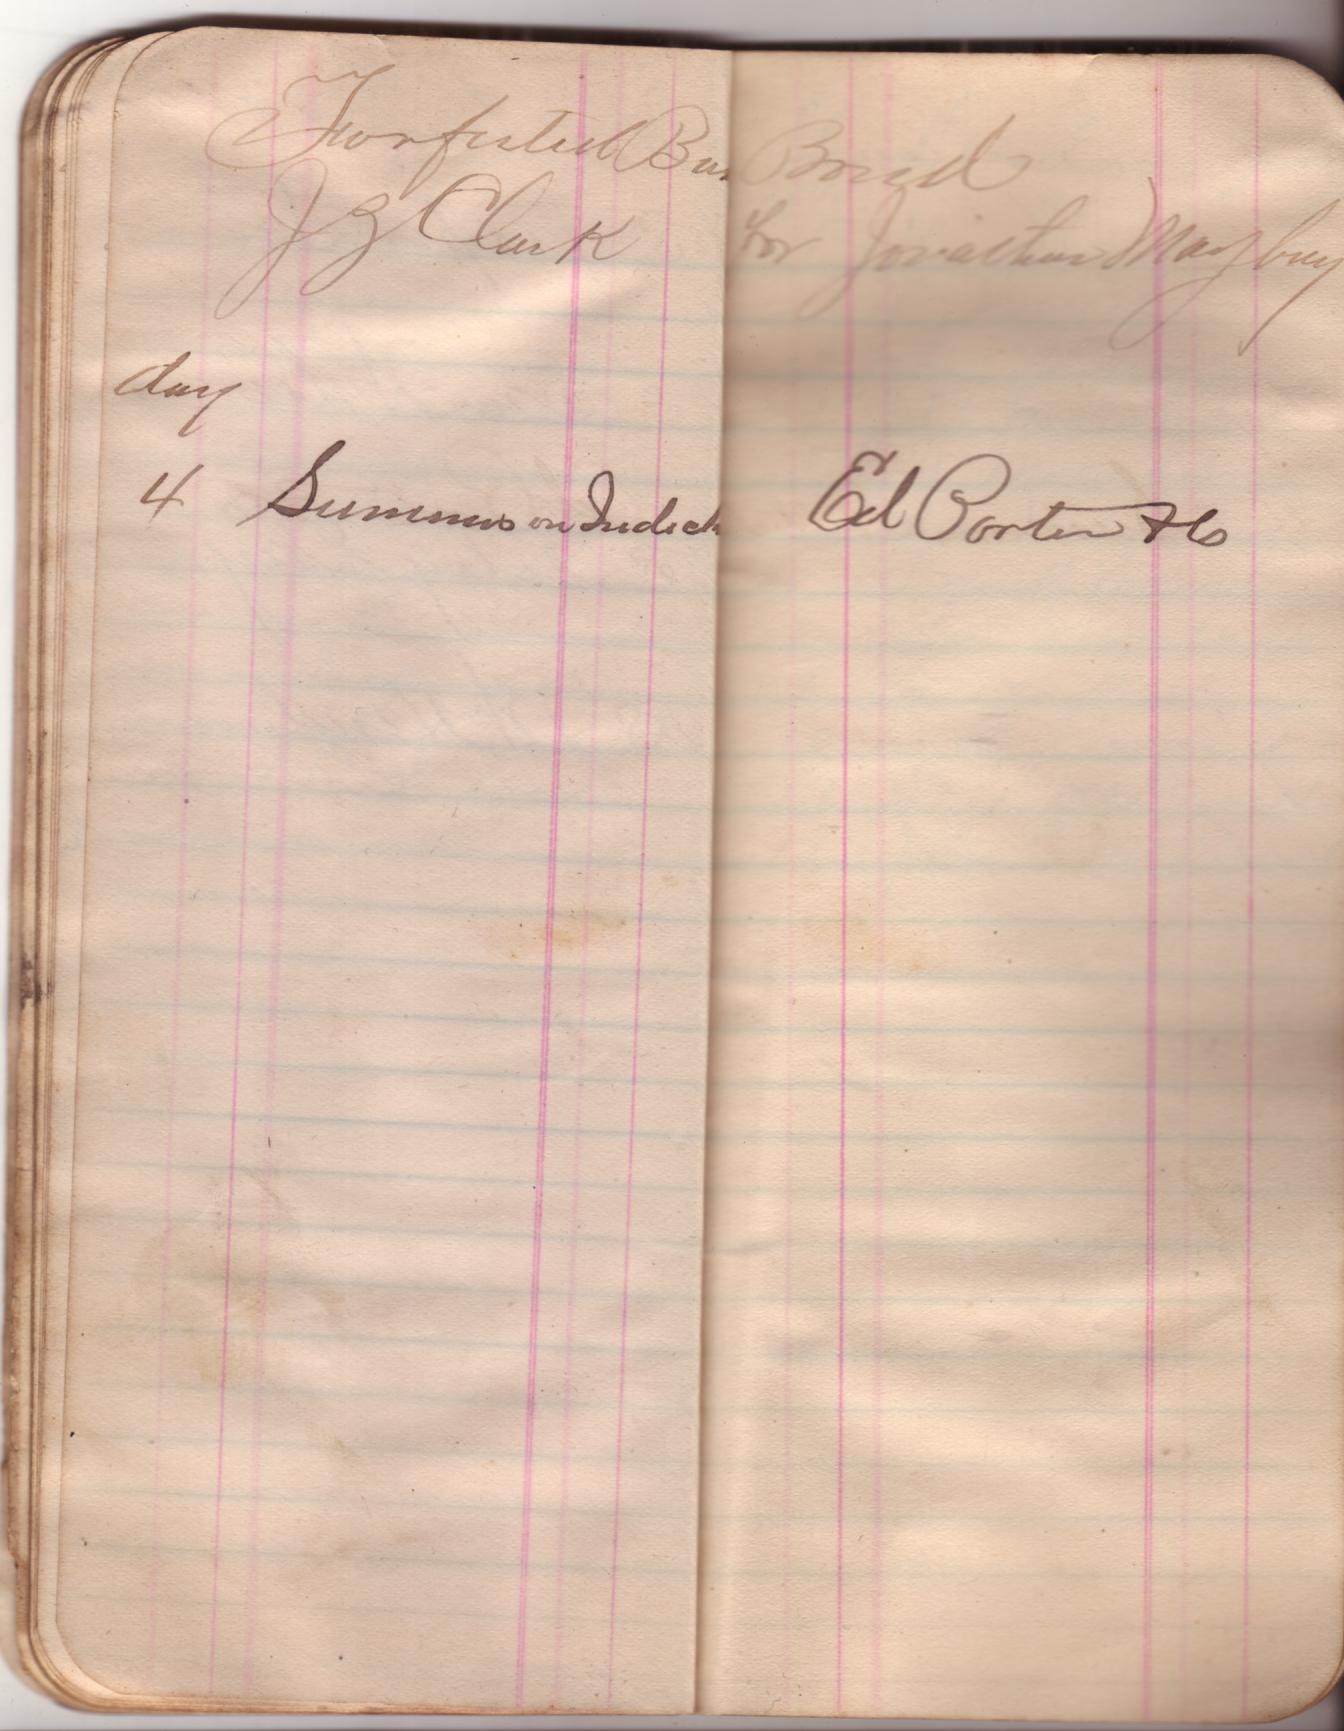 Forfisted Bon Bond
J G Clark for Jonathan Maybury
day
4 Summns on Indict Ed Porter